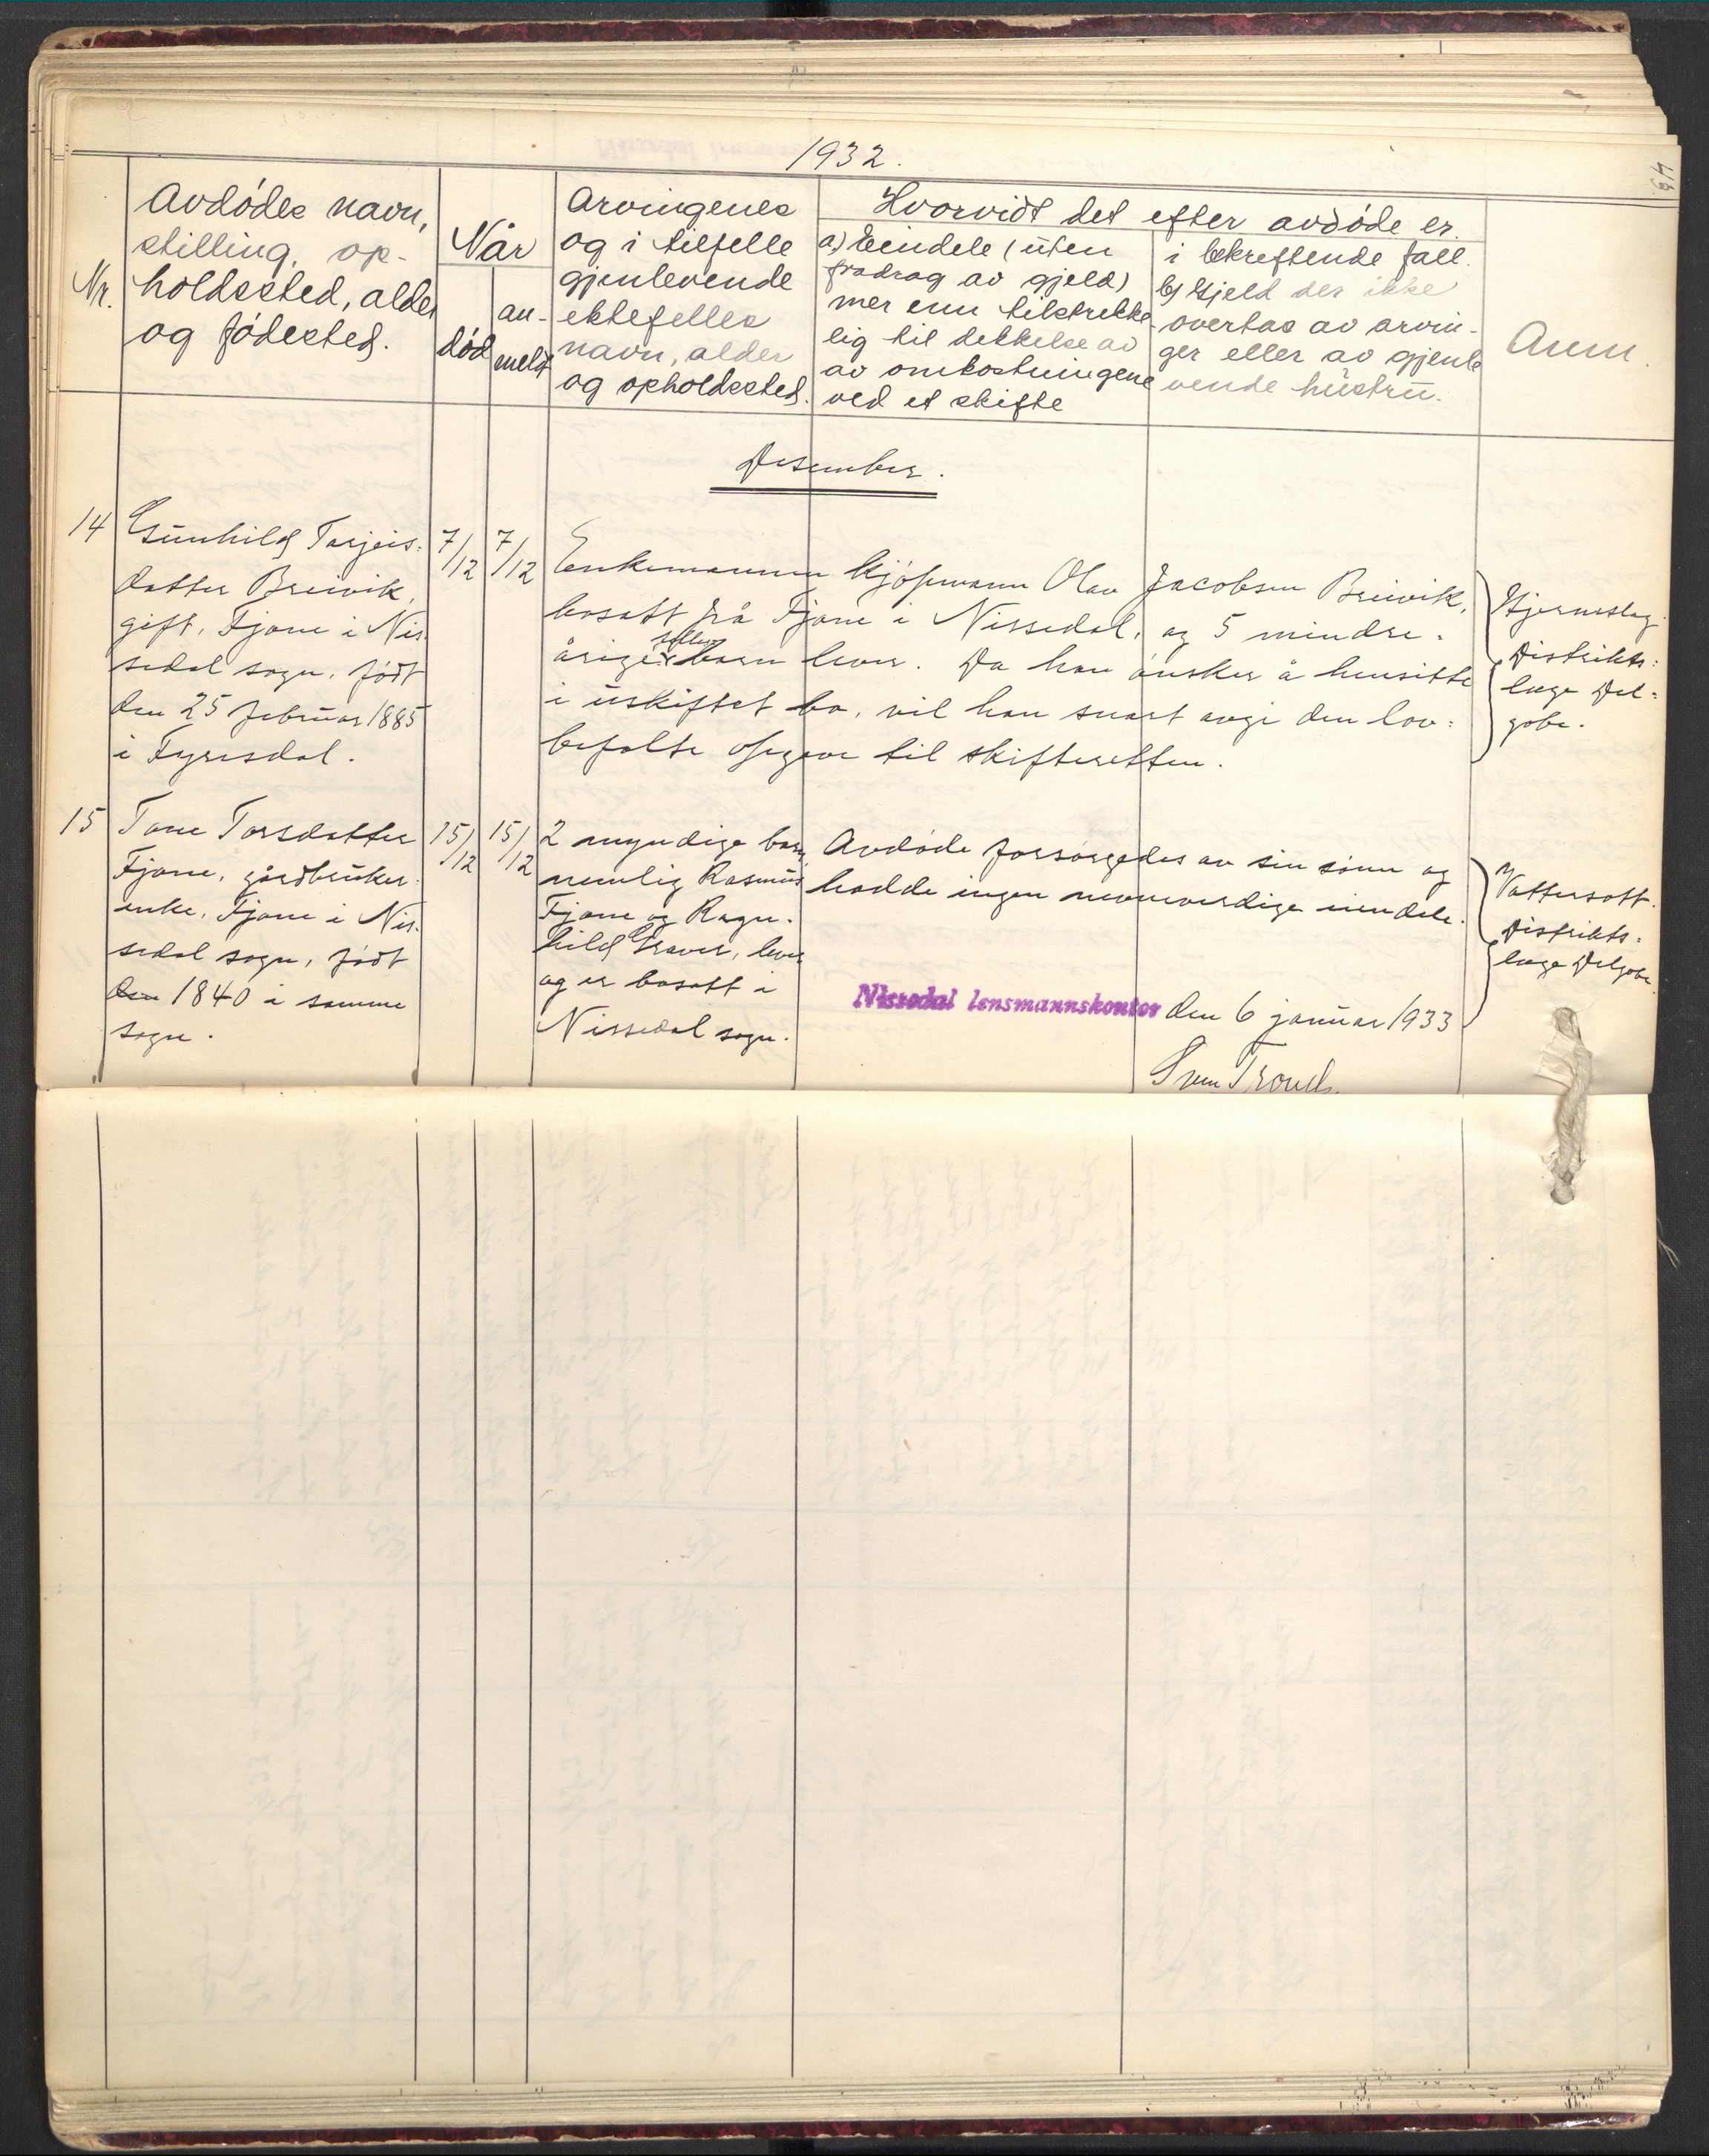 1932.
49
Nr.
Avdødes navn,
stilling, op-
holdssted, alder
og fødested.
Når
død
an-
meldt
Arvingenes
og i tilfelle
gjenlevende
ektefelles
navn, alder
og opholdssted.
Hvorvidt det efter avdøde er.
a) Eiendele (uten
fradrag av gjeld)
mer enn tilstrekke-
lig til dekkelse av
av omkostningene
ved et skifte
i bekreftende fall.
b) Gjeld der ikke
overtas av arvin-
ger eller av gjenle
vende hustru.
Anm.
Desember.
14
Gunhild Tarjeis-
datter Breivik,
gift, Fjone i Nis-
sedal sogn, født
den 25 februar 1885
i Fyresdal.
7/12
7/12
Enkemannen kjøpmann Olav Jacobsen Breivik,
bosatt på Fjone i Nissedal, og 5 mindre-
årige barn lever. Da han ønsker å hensitte
i uskiftet bo, vil han snart avgi den lov-
befalte opgave til skifteretten.
Hjerneslag
Distrikts-
læge Del-
gobe.
15
Tone Torsdatter
Fjone, gårdbruker-
enke, Fjone i Nis-
sedal sogn, født
den 1840 i samme
sogn.
15/12
15/12
2 myndige barn,
nemlig Rasmus
Fjone og Ragn-
hild Graver, lever
og er bosatt i
Nissedal sogn.
Avdøde forsørgedes av sin sønn og
hadde ingen nevneverdige eiendele.
Vattersott.
Distrikts-
læge Delgobe.
Nissedal lensmannskontor den 6 januar 1933
Sven Tronds.